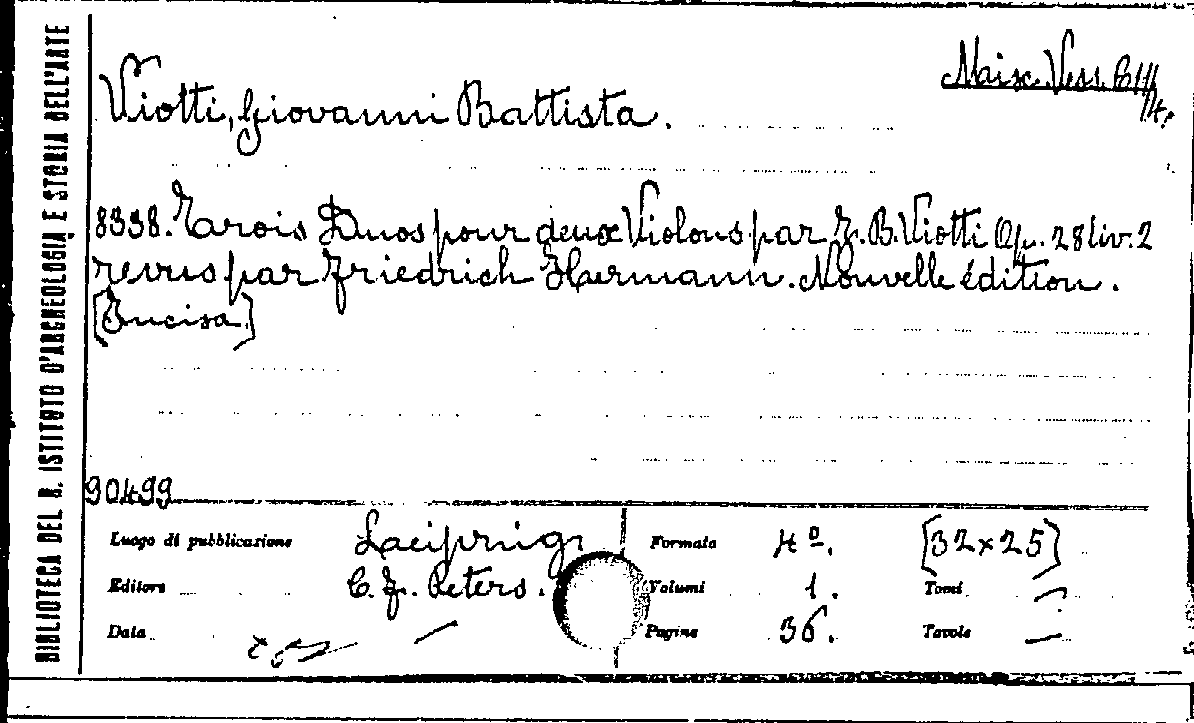 BIBLIOTECA DEL R. ISTITUTO D'ARCHEOLOGIA E STORIA DELL'ARTE
Misc. Vess. C III
14.
Viotti, Giovanni Battista.
8338. Trois Duos pour deux Violons par J. B. Viotti Op. 28 liv. 2
revus par Friedrich Hermann. Nouvelle édition.
[Incisa]
90499
Luogo di pubblicazione Leipzig Formato 4º. [32×25]
Editore C. F. Peters. Volumi 1. Tomi —
Data — Pagine 36. Tavole —